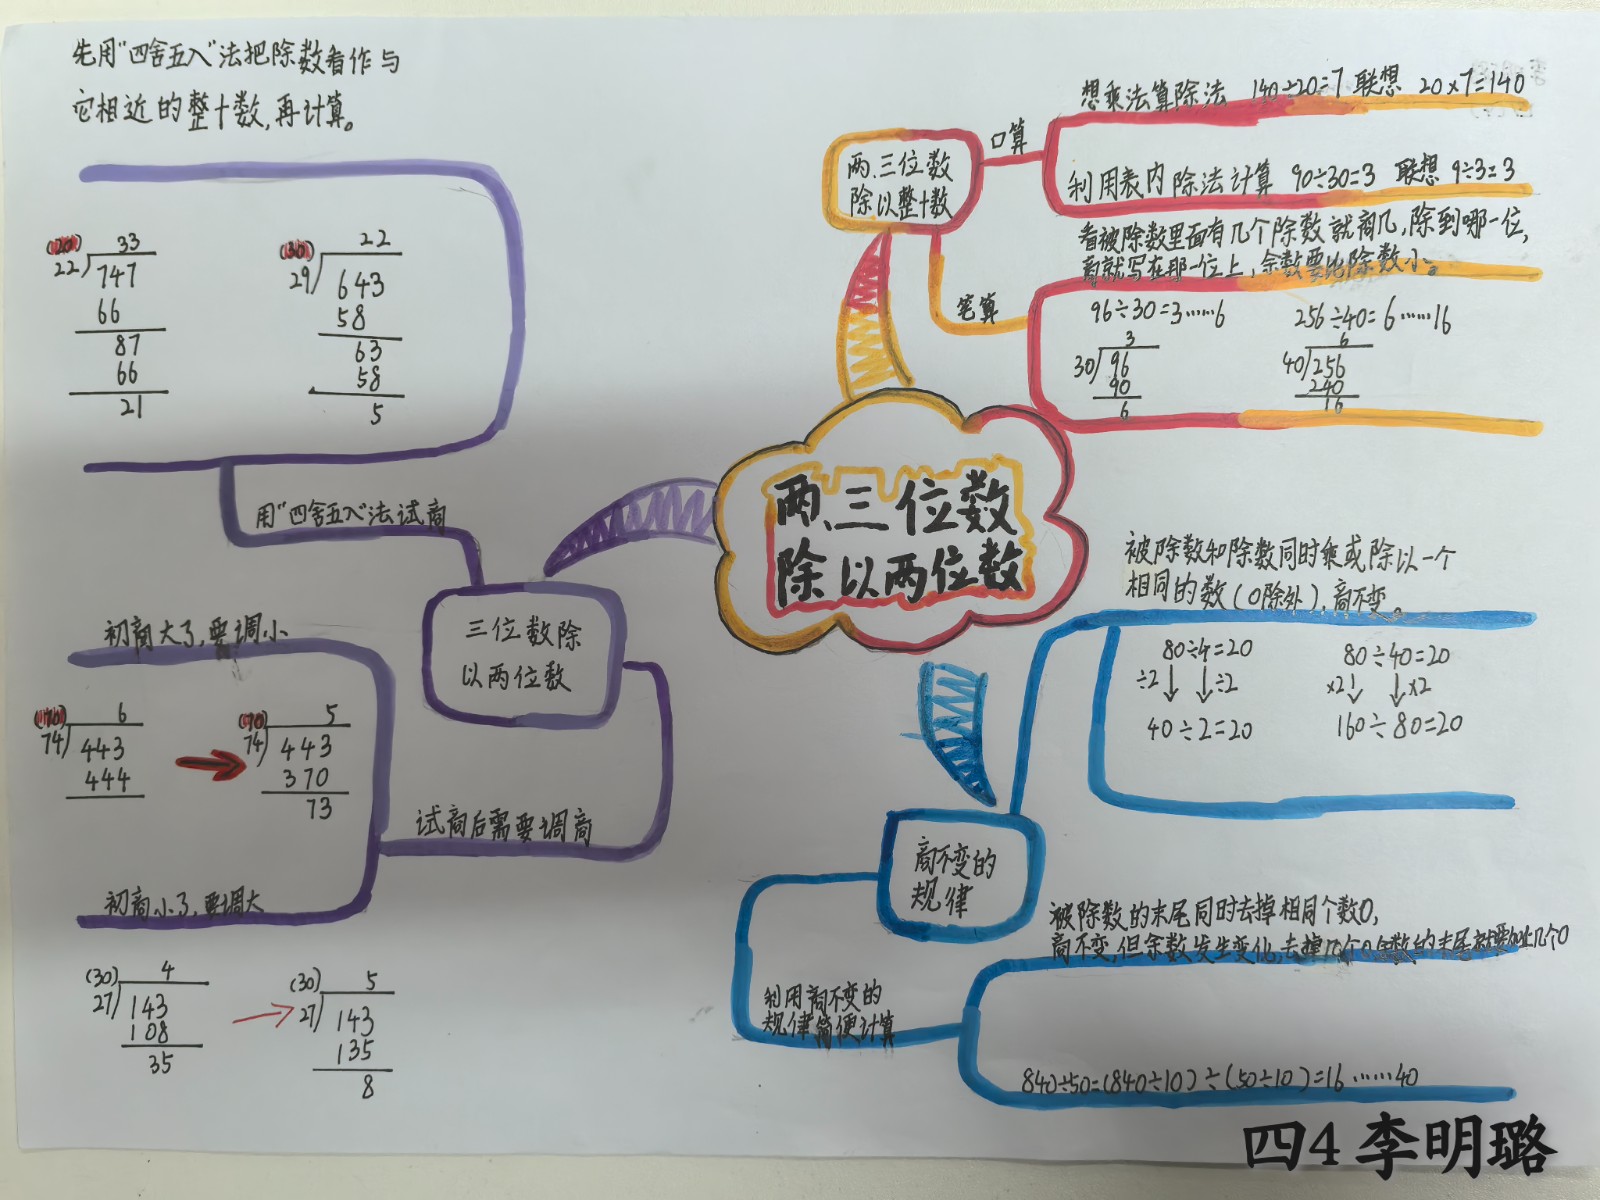 先用“四舍五入”法把除数看作与
它相近的整十数,再计算。
(20) 33
22 747
66
87
66
21
(30) 22
29 643
58
63
58
5
用“四舍五入”法试商
三位数除
以两位数
初商大了,要调小
(70) 6
74 443
444
(70) 5
74 443
370
73
试商后需要调商
初商小了,要调大
(30) 4
27 143
108
35
(30) 5
27 143
135
8
两、三位数
除以两位数
两、三位数
除以整十数
口算
想乘法算除法 140÷20=7 联想 20×7=140
利用表内除法计算 90÷30=3 联想 9÷3=3
笔算
看被除数里面有几个除数就商几,除到哪一位,
商就写在那一位上,余数要比除数小。
96÷30=3……6 256÷40=6……16
3
30 96
90
6
6
40 256
240
16
商不变的
规律
被除数和除数同时乘或除以一个
相同的数(0除外),商不变。
80÷4=20 80÷40=20
÷2 ÷2 ×2 ×2
40÷2=20 160÷80=20
利用商不变的
规律简便计算
被除数的末尾同时去掉相同个数0,
商不变,但余数发生变化,去掉几个0,余数的末尾就要加上几个0
840÷50=(840÷10)÷(50÷10)=16……40
四4 李明璐